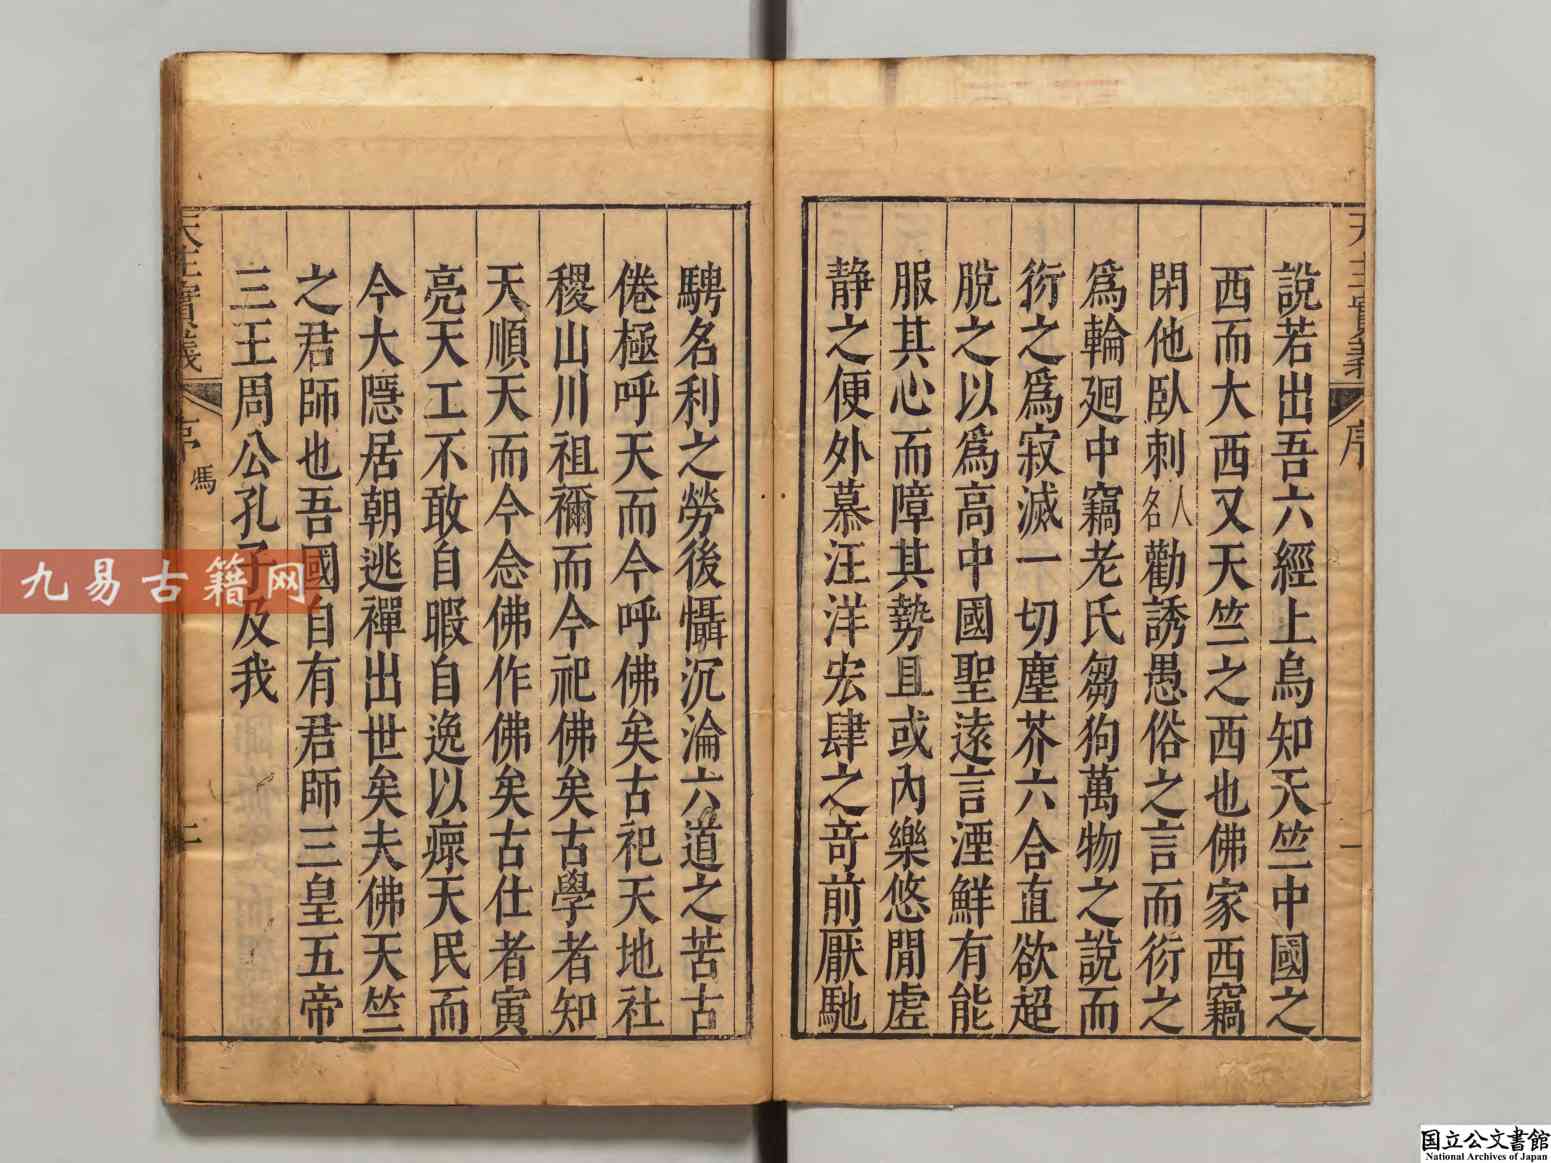 天主實義 序 一
說若出吾六經上烏知天竺中國之
西而大西又天竺之西也佛家西竊
閉他臥剌人名勸誘愚俗之言而衍之
爲輪廻中竊老氏芻狗萬物之說而
衍之爲寂滅一切塵芥六合直欲超
脫之以爲高中國聖遠言湮鮮有能
服其心而障其勢且或內樂悠閒虛
靜之便外慕汪洋宏肆之竒前厭馳
騁名利之勞後懾沉淪六道之苦古
倦極呼天而今呼佛矣古祀天地社
稷山川祖禰而今祀佛矣古學者知
天順天而今念佛作佛矣古仕者寅
亮天工不敢自暇自逸以瘝天民而
今大隱居朝逃禪出世矣夫佛天竺
之君師也吾國自有君師三皇五帝
三王周公孔子及我
天主實義 序 馮 二
九易古籍网
国立公文書館
National Archives of Japan